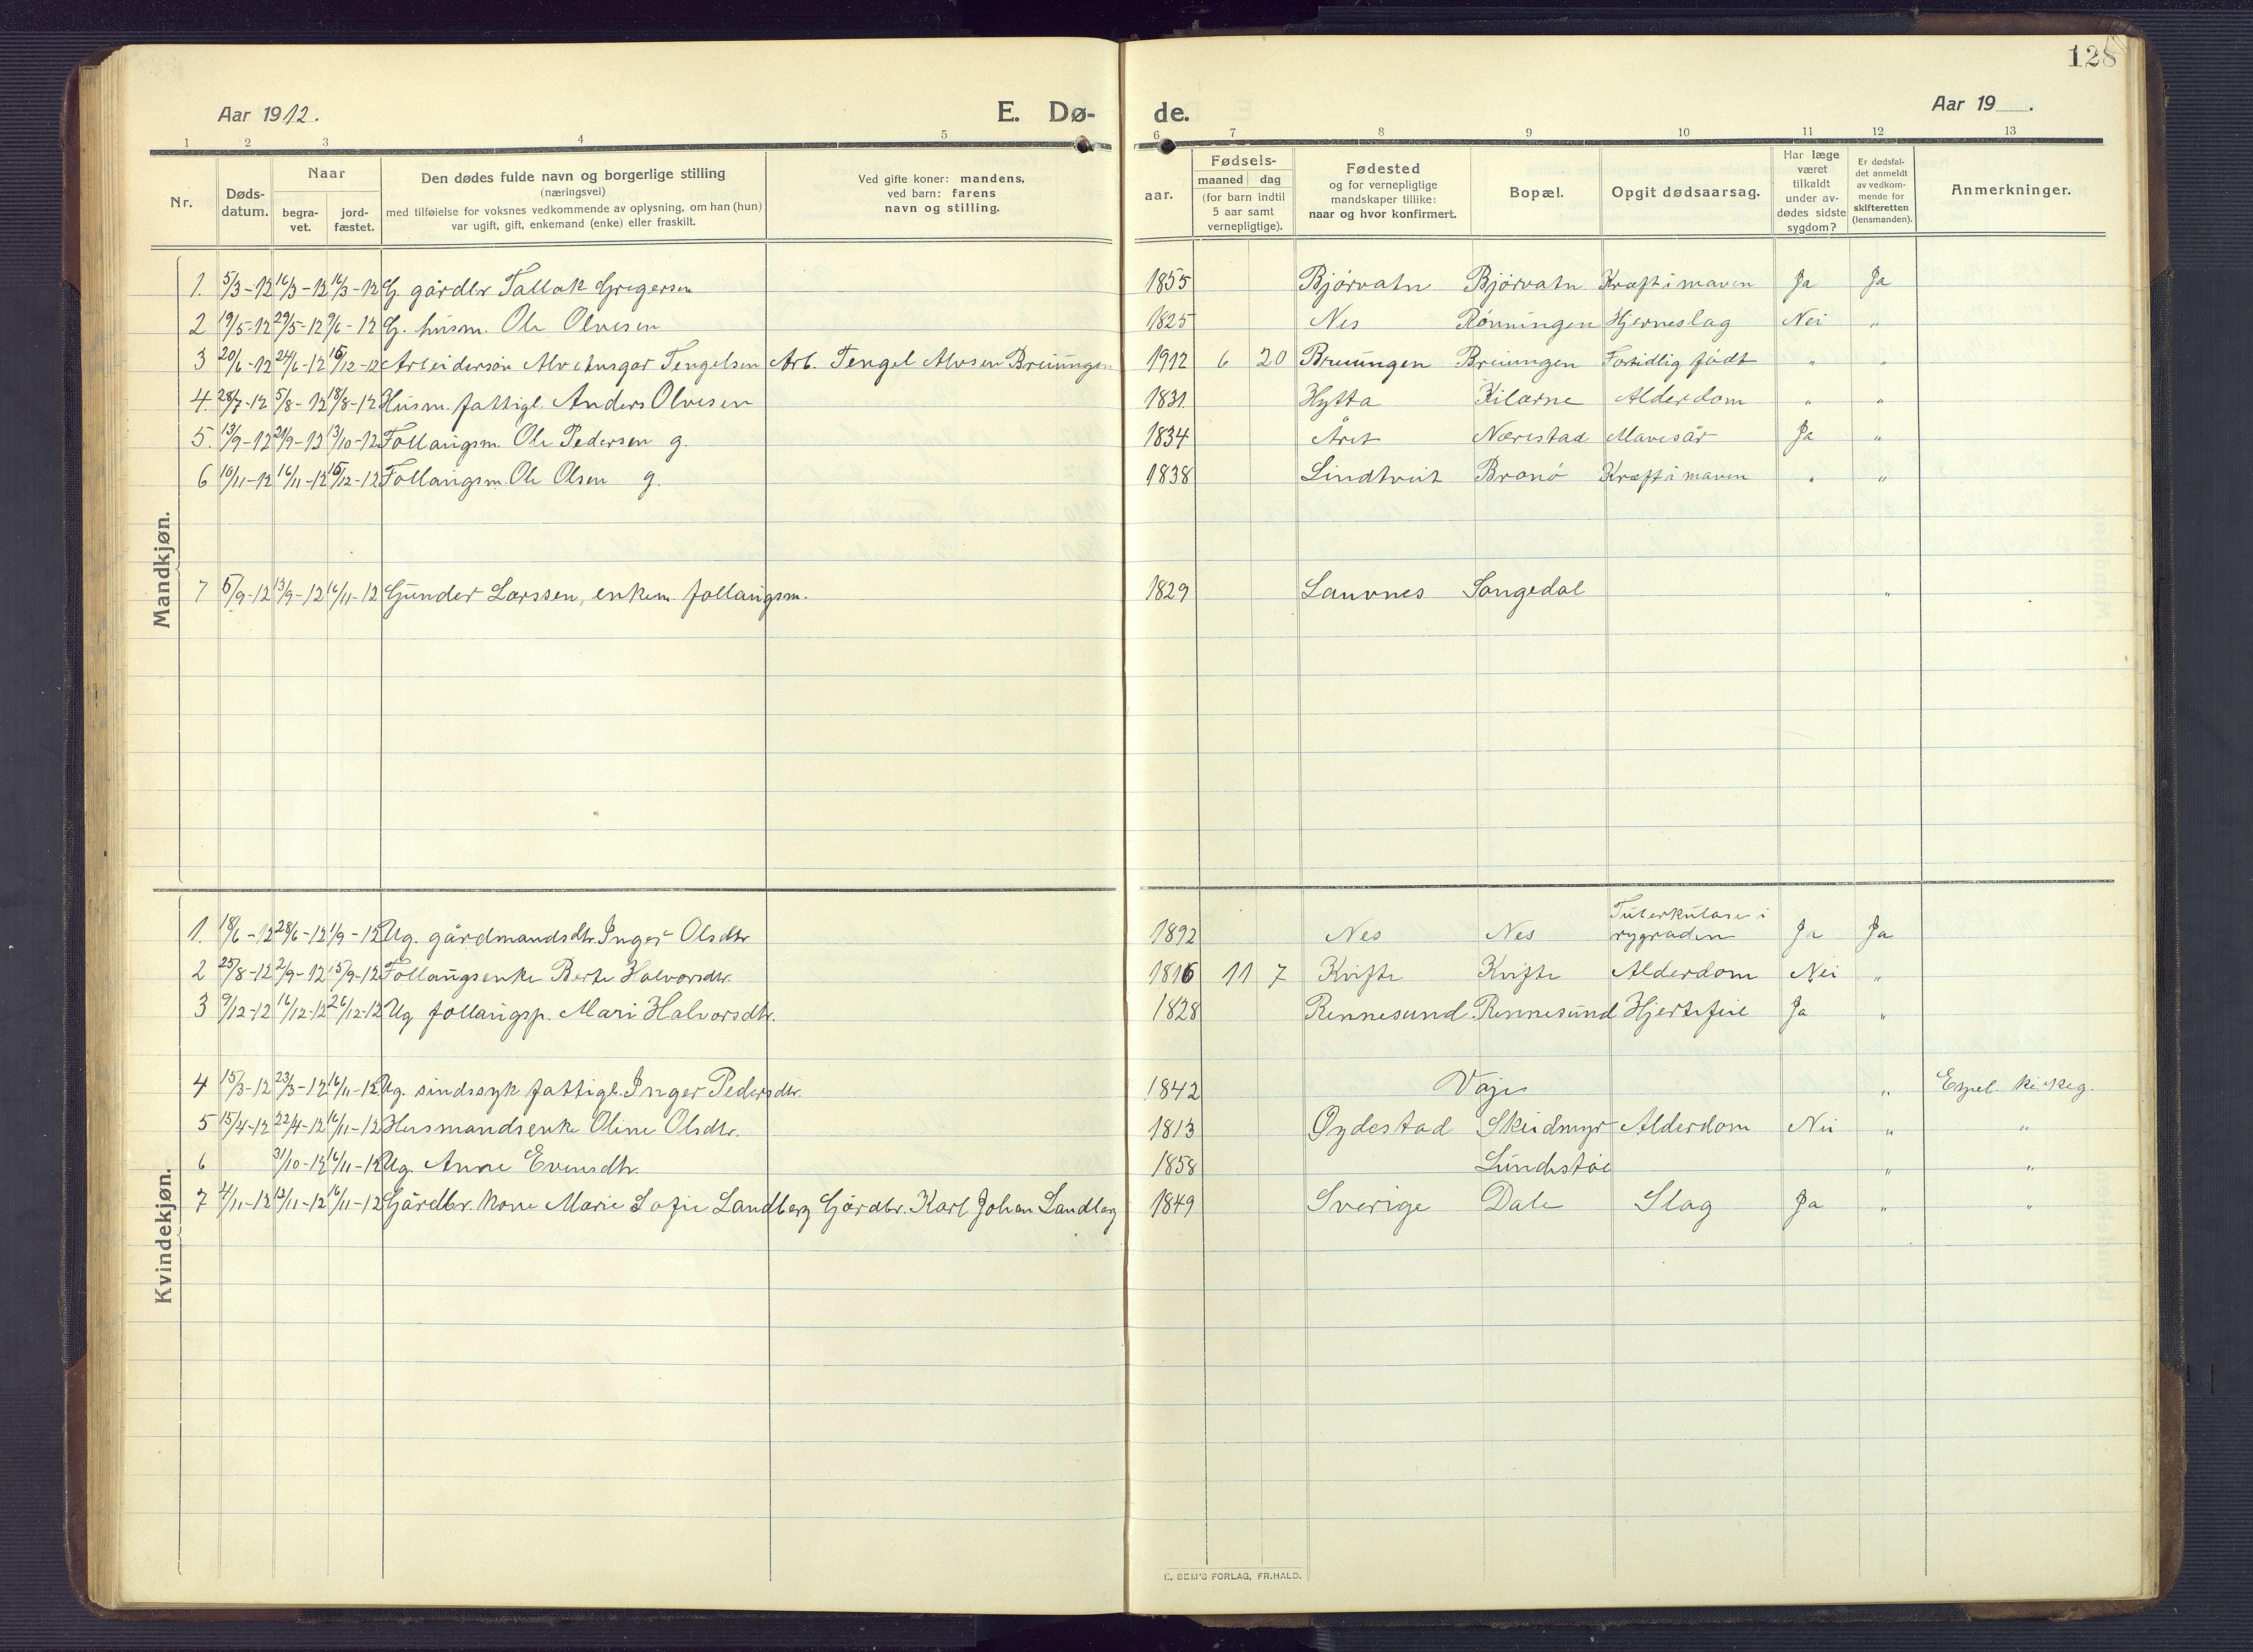 128
Aar 1912. E. Dø- de. Aar 19 .
1 2 3 4 5 6 7 8 9 10 11 12 13
Nr. Døds-datum. Naar begra-vet. jord-fæstet. Den dødes fulde navn og borgerlige stilling (næringsvei) med tilføielse for voksnes vedkommende av oplysning, om han (hun) var ugift, gift, enkemand (enke) eller fraskilt. Ved gifte koner: mandens, ved barn: farens navn og stilling. aar. Fødsels- maaned dag (for barn indtil 5 aar samt vernepligtige). Fødested og for vernepligtige mandskaper tillike: naar og hvor konfirmert. Bopæl. Opgit dødsaarsag. Har læge været tilkaldt under av-dødes sidste sygdom? Er dødsfal-det anmeldt av vedkom-mende for skifteretten (lensmanden). Anmerkninger.
Mandkjøn.
1. 5/3-12 16/3-12 16/3-12 G. gårdbr Tallak Gregersen 1855 Bjørvatn Bjørvatn Kræft i maven Ja Ja
2 19/5-12 29/5-12 9/6-12 G. husm. Ole Olvesen 1825 Nes Rønningen Hjerneslag Nei "
3 20/6-12 24/6-12 15/12-12 Arbeidersøn Alv Ansgar Tengelsen Arb. Tengel Alvsen Breiungen 1912 6 20 Breiungen Breiungen Fortidlig født " "
4. 28/7-12 5/8-12 18/8-12 Husm. fattigl. Anders Olvesen 1831 Hytta Kilarne Alderdom " "
5. 13/9-12 21/9-12 13/10-12 Follaugsm. Ole Pedersen g. 1834 Året Nærestad Mavesår Ja "
6 10/11-12 16/11-12 15/12-12 Follaugsm. Ole Olsen g. 1838 Lindtveit Bronø Kræft i maven " "
7 5/9-12 13/9-12 16/11-12 Gunder Larssen, enkem. follaugsm. 1829 Lauvnes Songedal "
Kvindekjøn.
1. 18/6-12 28/6-12 1/9-12 Ug. gårdmandsdtr. Inger Olsdtr 1892 Nes Nes Tuberkulose i rygraden Ja Ja
2 25/8-12 2/9-12 15/9-12 Follaugsenke Berte Halvorsdtr. 1816 11 7 Kvifte Kvifte Alderdom Nei "
3 9/12-12 16/12-12 26/12-12 Ug follaugsp. Mari Halvorsdtr. 1828 Rennesund Rennesund Hjertefeil Ja "
4 15/3-12 23/3-12 16/11-12 Ug. sindssyk fattigl. Inger Pedersdtr. 1842 Vaje " Expel. kirkeg.
5 15/4-12 22/4-12 16/11-12 Husmandsenke Oline Olsdtr. 1813 Øydestad Skeidmyr Alderdom Nei " "
6 31/10-12 16/11-12 Ug. Anne Evensdtr. 1858 Lundestøl " "
7 4/11-12 12/11-12 16/11-12 Gårdbr. kone Marie Sofie Landberg Gårdbr. Karl Johan Landberg 1849 Sverige Dale Slag Ja " "
E. SEM'S FORLAG, FR.HALD.